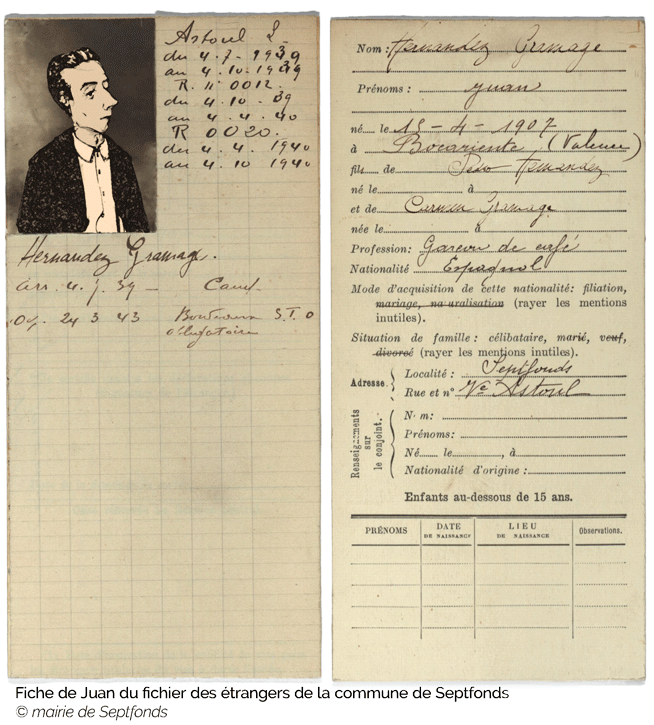 Astoul L
du 4-7-1939
au 4.10.1939
R. n° 0012.
du 4.10.39
au 4.4.40
R 0020.
du 4.4.1940
au 4.10 1940
Hernandez Gramage.
arr. 4.7.39 — Camp.
24 3 43 S.T.O
obligatoire
Nom : Hernandez Gramage
Prénoms : Juan
né le 15-4-1907
à Bocariente, (Valence)
fils de Hernandez
né le à
et de Carmen Gramage
née le à
Profession: Garcon de café
Nationalité Espagnol
Mode d'acquisition de cette nationalité: filiation,
mariage, na uralisation (rayer les mentions
inutiles).
Situation de famille : célibataire, marié, veuf,
divorcé (rayer les mentions inutiles).
Adresse. Localité : Septfonds
Rue et n° Vc Astoul
Renseignements sur le conjoint.
N m:
Prénoms:
Né le , à
Nationalité d'origine :
Enfants au-dessous de 15 ans.
PRÉNOMS DATE DE NAISSANCE LIEU DE NAISSANCE Observations.
Fiche de Juan du fichier des étrangers de la commune de Septfonds
© mairie de Septfonds